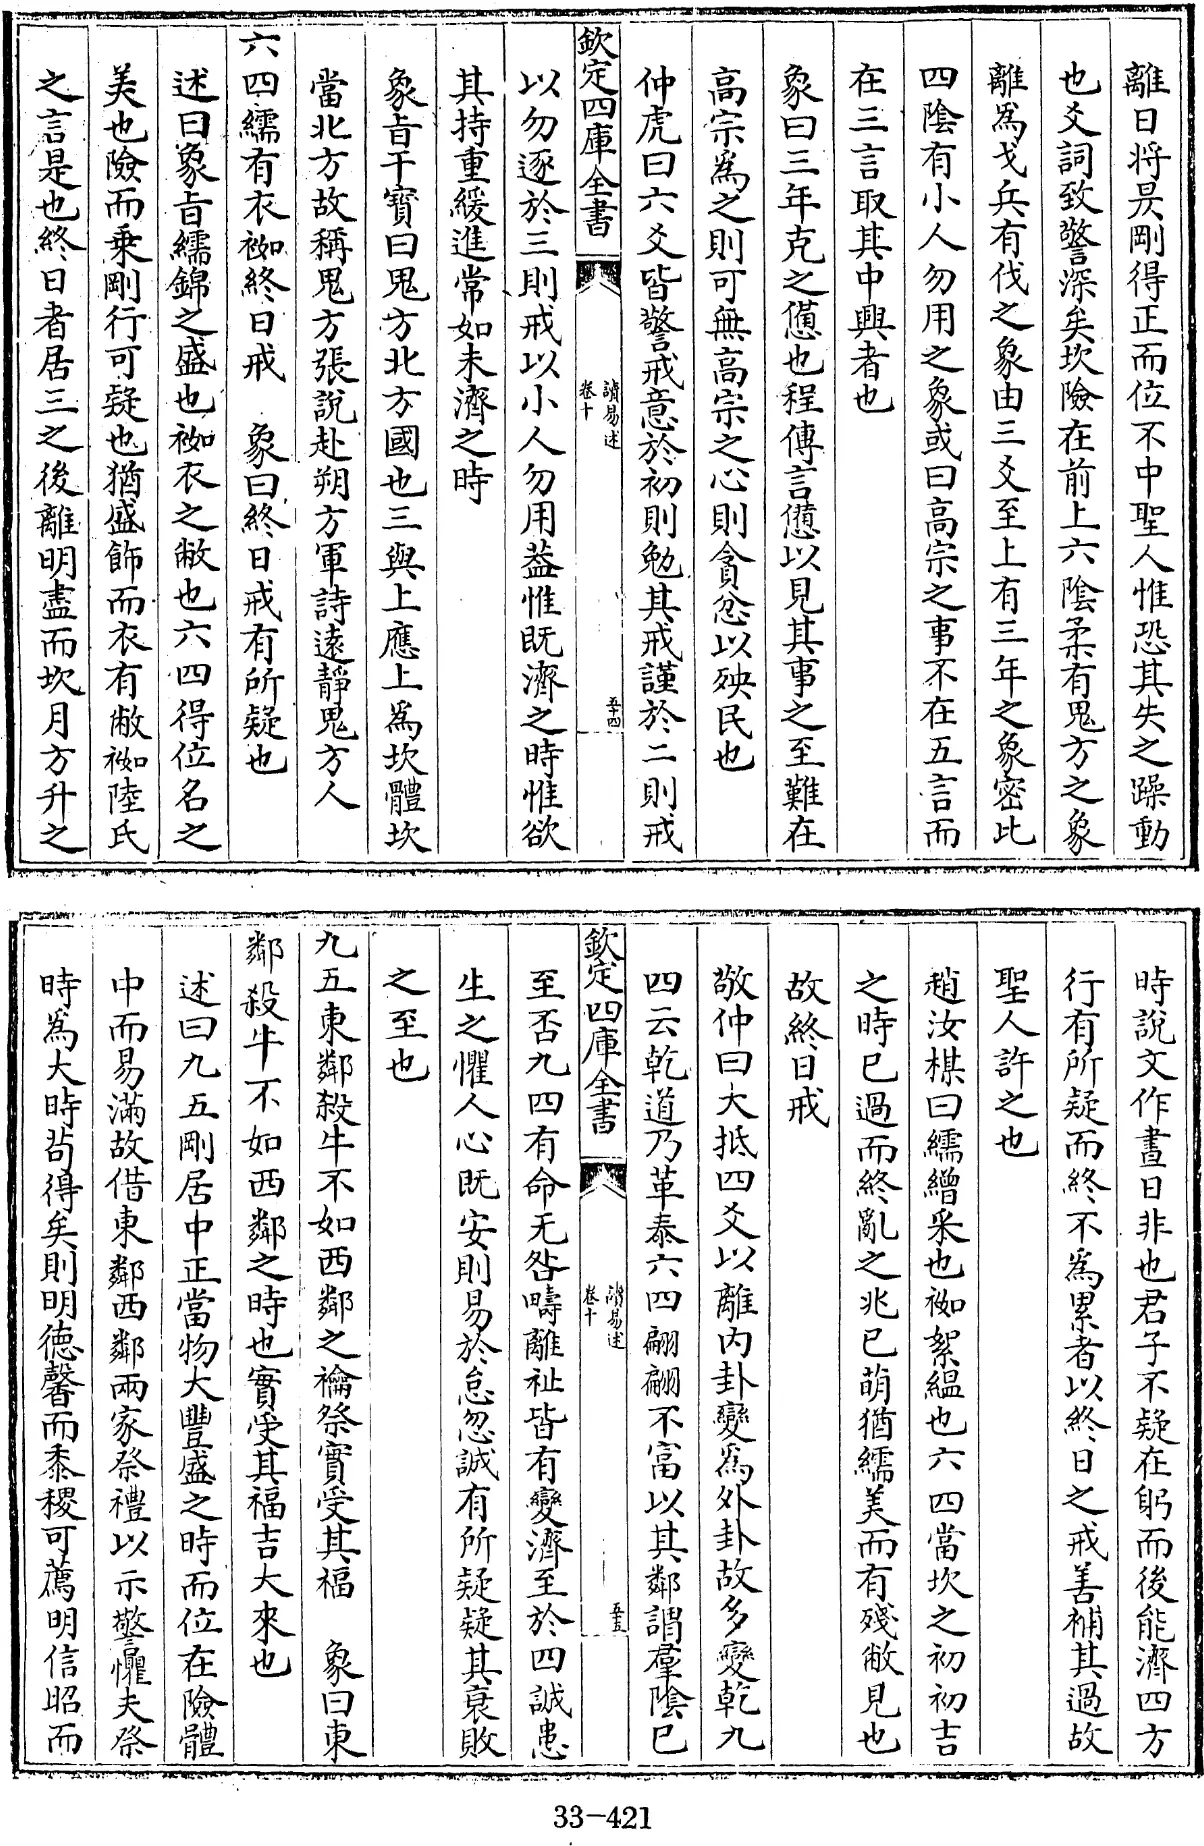 離日将昃剛得正而位不中聖人惟恐其失之躁動
也爻詞致警深矣坎險在前上六陰柔有鬼方之象
離為戈兵有伐之象由三爻至上有三年之象密比
四陰有小人勿用之象或曰高宗之事不在五言而
在三言取其中興者也
象曰三年克之憊也程傳言憊以見其事之至難在
高宗為之則可無高宗之心則貪忿以殃民也
仲虎曰六爻皆警戒意於初則勉其戒謹於二則戒
欽定四庫全書
讀易述
卷十
五十四
以勿逐於三則戒以小人勿用葢惟既濟之時惟欲
其持重緩進常如未濟之時
象旨干寶曰鬼方北方國也三與上應上為坎體坎
當北方故稱鬼方張說赴朔方軍詩遠靜鬼方人
六四繻有衣袽終日戒 象曰終日戒有所疑也
述曰象旨繻錦之盛也袽衣之敝也六四得位名之
美也險而乗剛行可疑也猶盛飾而衣有敝袽陸氏
之言是也終日者居三之後離明盡而坎月方升之
時說文作晝日非也君子不疑在躬而後能濟四方
行有所疑而終不為累者以終日之戒善補其過故
聖人許之也
趙汝楳曰繻繒采也袽絮緼也六四當坎之初初吉
之時已過而終亂之兆已萌猶繻美而有殘敝見也
故終日戒
敬仲曰大抵四爻以離内卦變為外卦故多變乾九
四云乾道乃革泰六四翩翩不富以其鄰謂羣陰已
欽定四庫全書
讀易述
卷十
五十五
至否九四有命无咎疇離祉皆有變濟至於四誠患
生之懼人心既安則易於怠忽誠有所疑疑其衰敗
之至也
九五東鄰殺牛不如西鄰之禴祭實受其福 象曰東
鄰殺牛不如西鄰之時也實受其福吉大來也
述曰九五剛居中正當物大豐盛之時而位在險體
中而易滿故借東鄰西鄰兩家祭禮以示警懼夫祭
時為大時茍得矣則明徳馨而黍稷可薦明信昭而
33-421